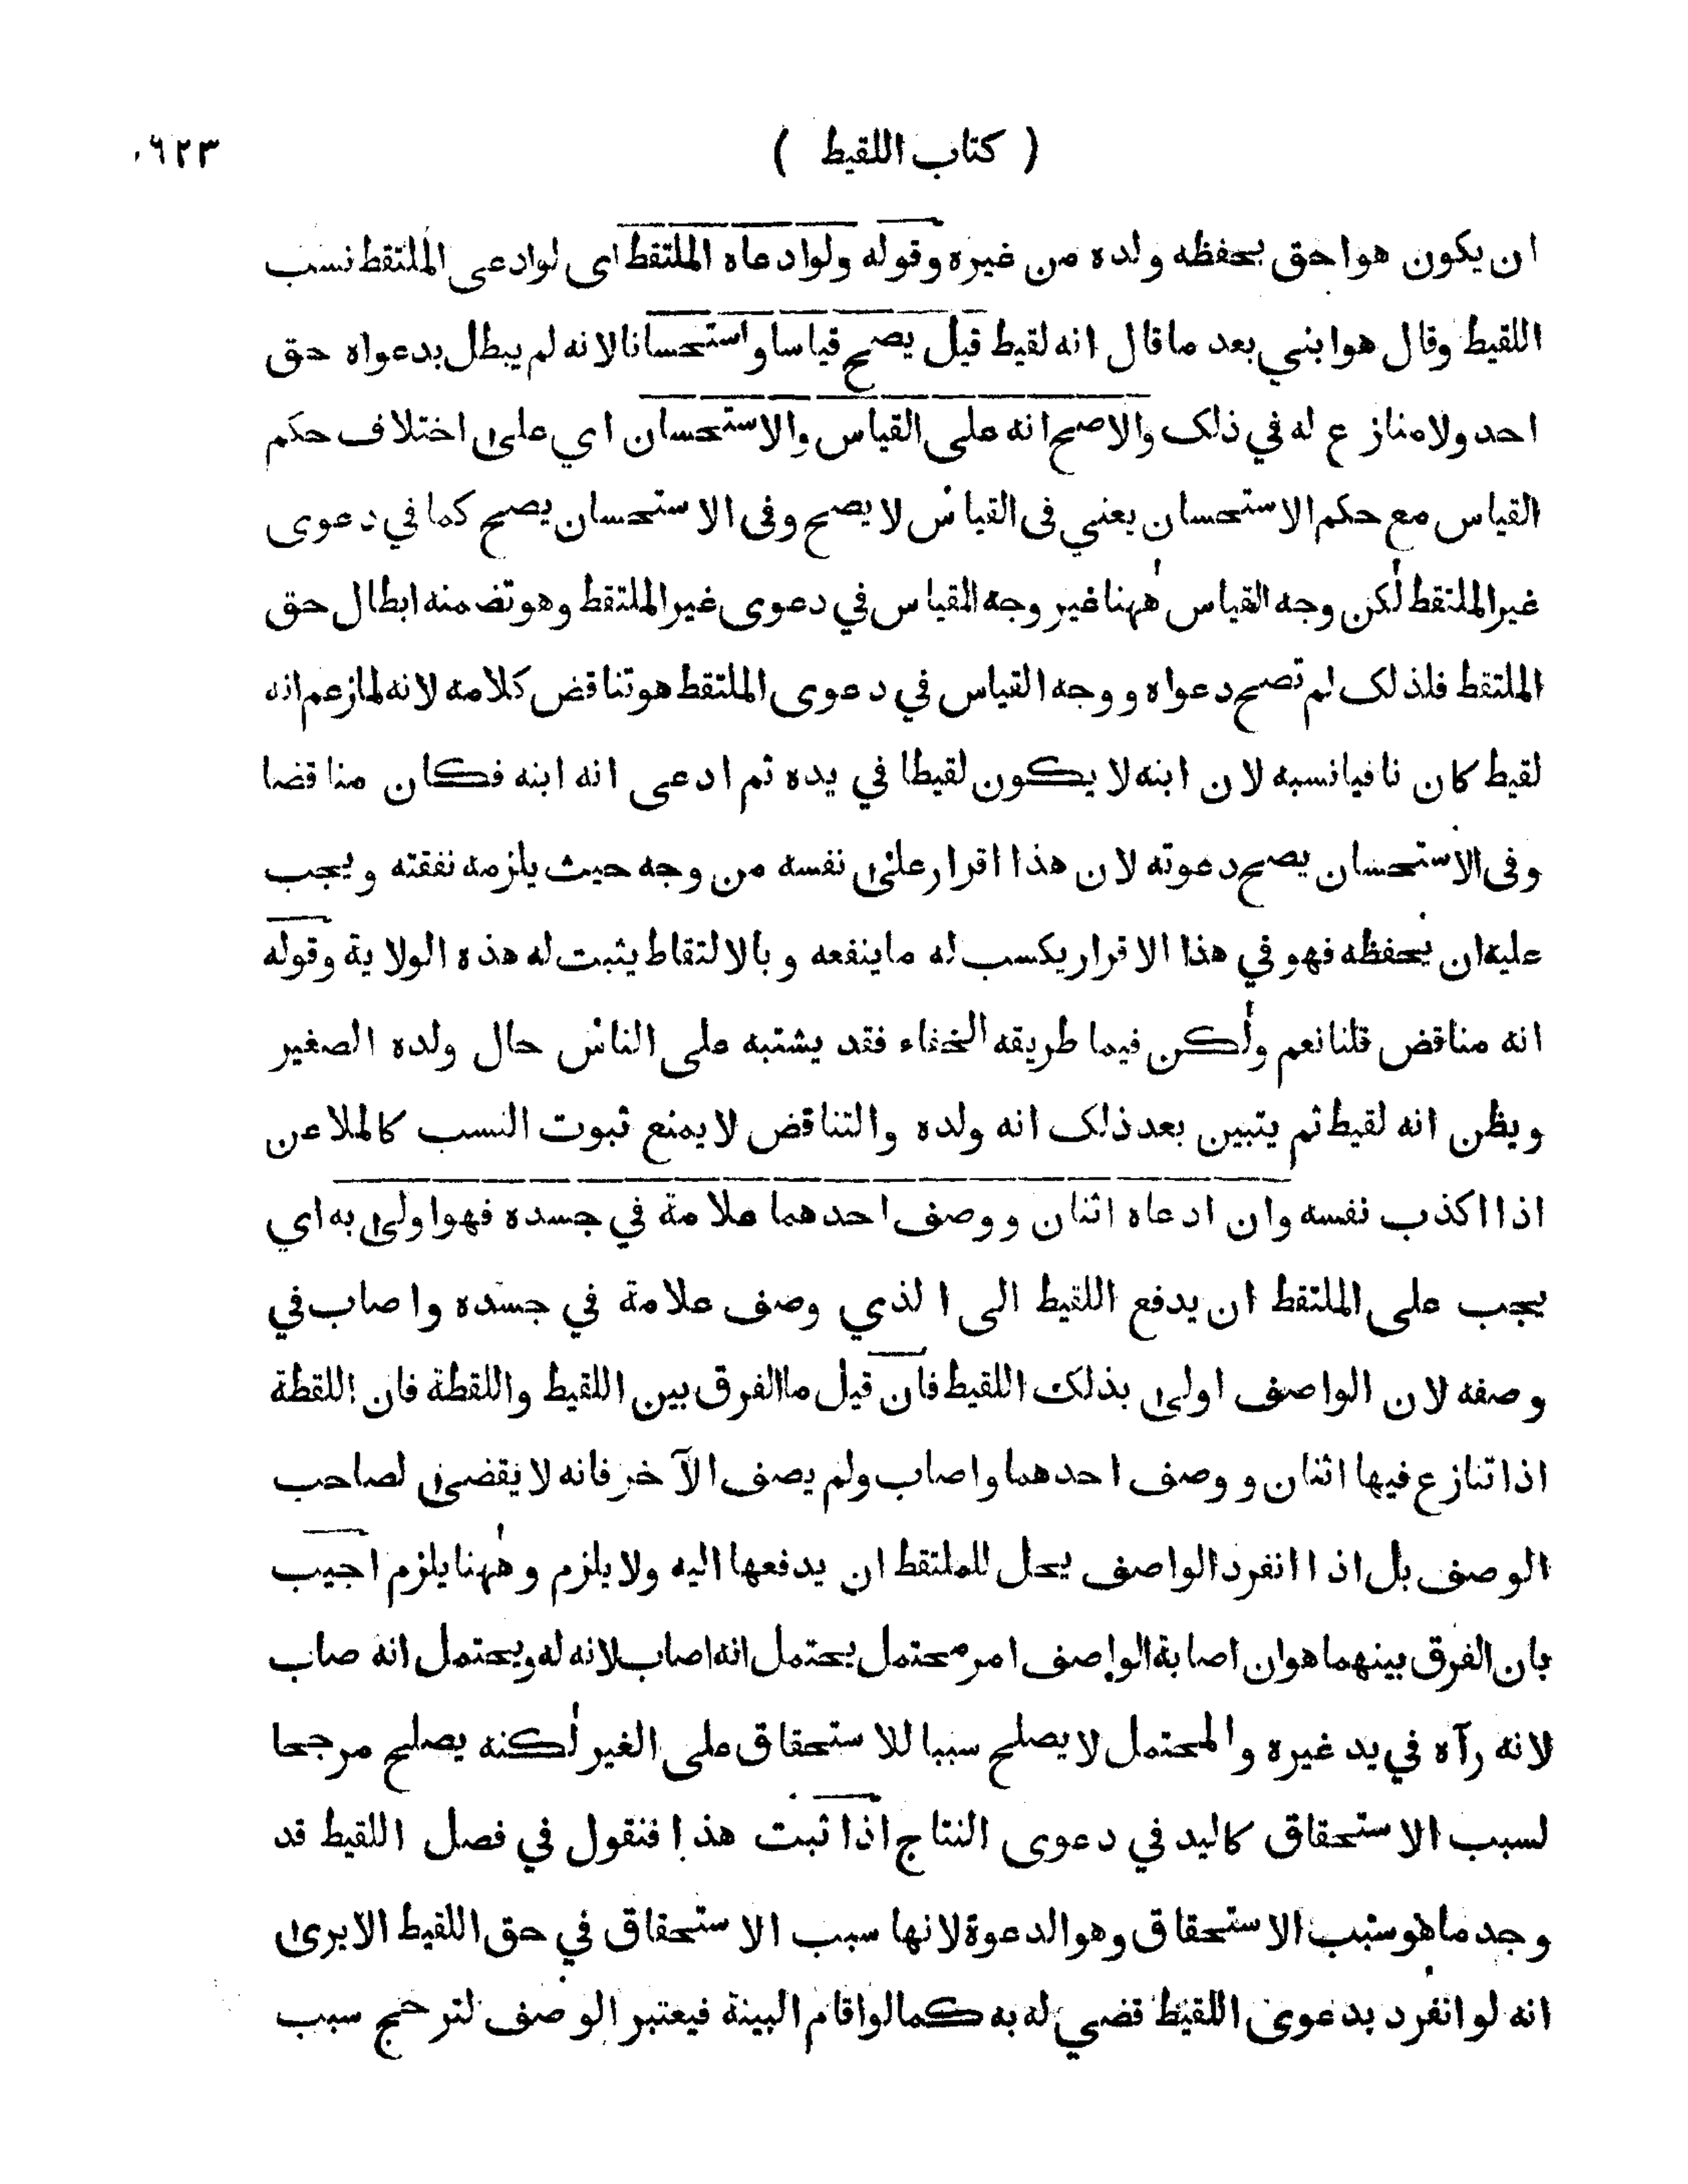 ( كتاب اللقيط ) ٦٢٣
ان يكون هو احق بحفظه ولده من غيره وقوله ولو ادعاه الملتقط اى لو ادعى الملتقط نسب
اللقيط وقال هو ابني بعد ما قال انه لقيط قيل يصح قياسا واستحسانا لانه لم يبطل بدعواه حق
احد ولا منازع له في ذلك والاصح انه على القياس والاستحسان اي على اختلاف حكم
القياس مع حكم الاستحسان يعني فى القياس لا يصح وفى الاستحسان يصح كما في دعوى
غير الملتقط لٰكن وجه القياس هٰهنا غير وجه القياس في دعوى غير الملتقط وهو تضمنه ابطال حق
الملتقط فلذلك لم تصح دعواه ووجه القياس في دعوى الملتقط هو تناقض كلامه لانه لما زعم انه
لقيط كان نافيا نسبه لان ابنه لا يكون لقيطا في يده ثم ادعى انه ابنه فكان مناقضا
وفى الاستحسان يصح دعوته لان هذا اقرار على نفسه من وجه حيث يلزمه نفقته ويجب
عليه ان يحفظه فهو في هذا الاقرار يكسب له ما ينفعه وبالالتقاط يثبت له هذه الولاية وقوله
انه مناقض قلنا نعم ولٰكن فيما طريقه الخفاء فقد يشتبه على الناس حال ولده الصغير
ويظن انه لقيط ثم يتبين بعد ذلك انه ولده والتناقض لا يمنع ثبوت النسب كالملاعن
اذا اكذب نفسه وان ادعاه اثنان ووصف احدهما علامة في جسده فهو اولى به اي
يجب على الملتقط ان يدفع اللقيط الى الذي وصف علامة في جسده واصاب في
وصفه لان الواصف اولى بذلك اللقيط فان قيل ما الفرق بين اللقيط واللقطة فان اللقطة
اذا تنازع فيها اثنان ووصف احدهما واصاب ولم يصف الآخر فانه لا يقضى لصاحب
الوصف بل اذا انفرد الواصف يحل للملتقط ان يدفعها اليه ولا يلزم وهٰهنا يلزم اجيب
بان الفرق بينهما هو ان اصابة الواصف امر محتمل يحتمل انه اصاب لانه له ويحتمل انه صاب
لانه رآه في يد غيره والمحتمل لا يصلح سببا للاستحقاق على الغير لٰكنه يصلح مرجحا
لسبب الاستحقاق كاليد في دعوى النتاج اذا ثبت هذا فنقول في فصل اللقيط قد
وجد ما هو سبب الاستحقاق وهو الدعوة لانها سبب الاستحقاق في حق اللقيط الا يرى
انه لو انفرد بدعوى اللقيط قضي له به كما لو اقام البينة فيعتبر الوصف لترجح سبب